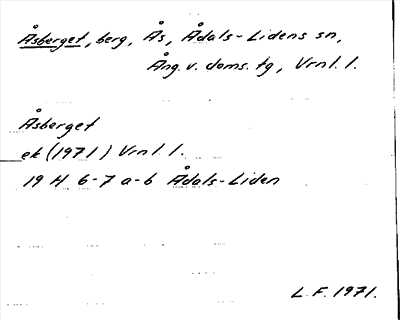 Åsberget, berg, Ås, Ådals-Lidens sn,
Ång. v. doms. tg, Vrnl. 1.
Åsberget
ek (1971) Vrnl. 1.
19 H 6-7 a-b Ådals-Liden
L.F. 1971.